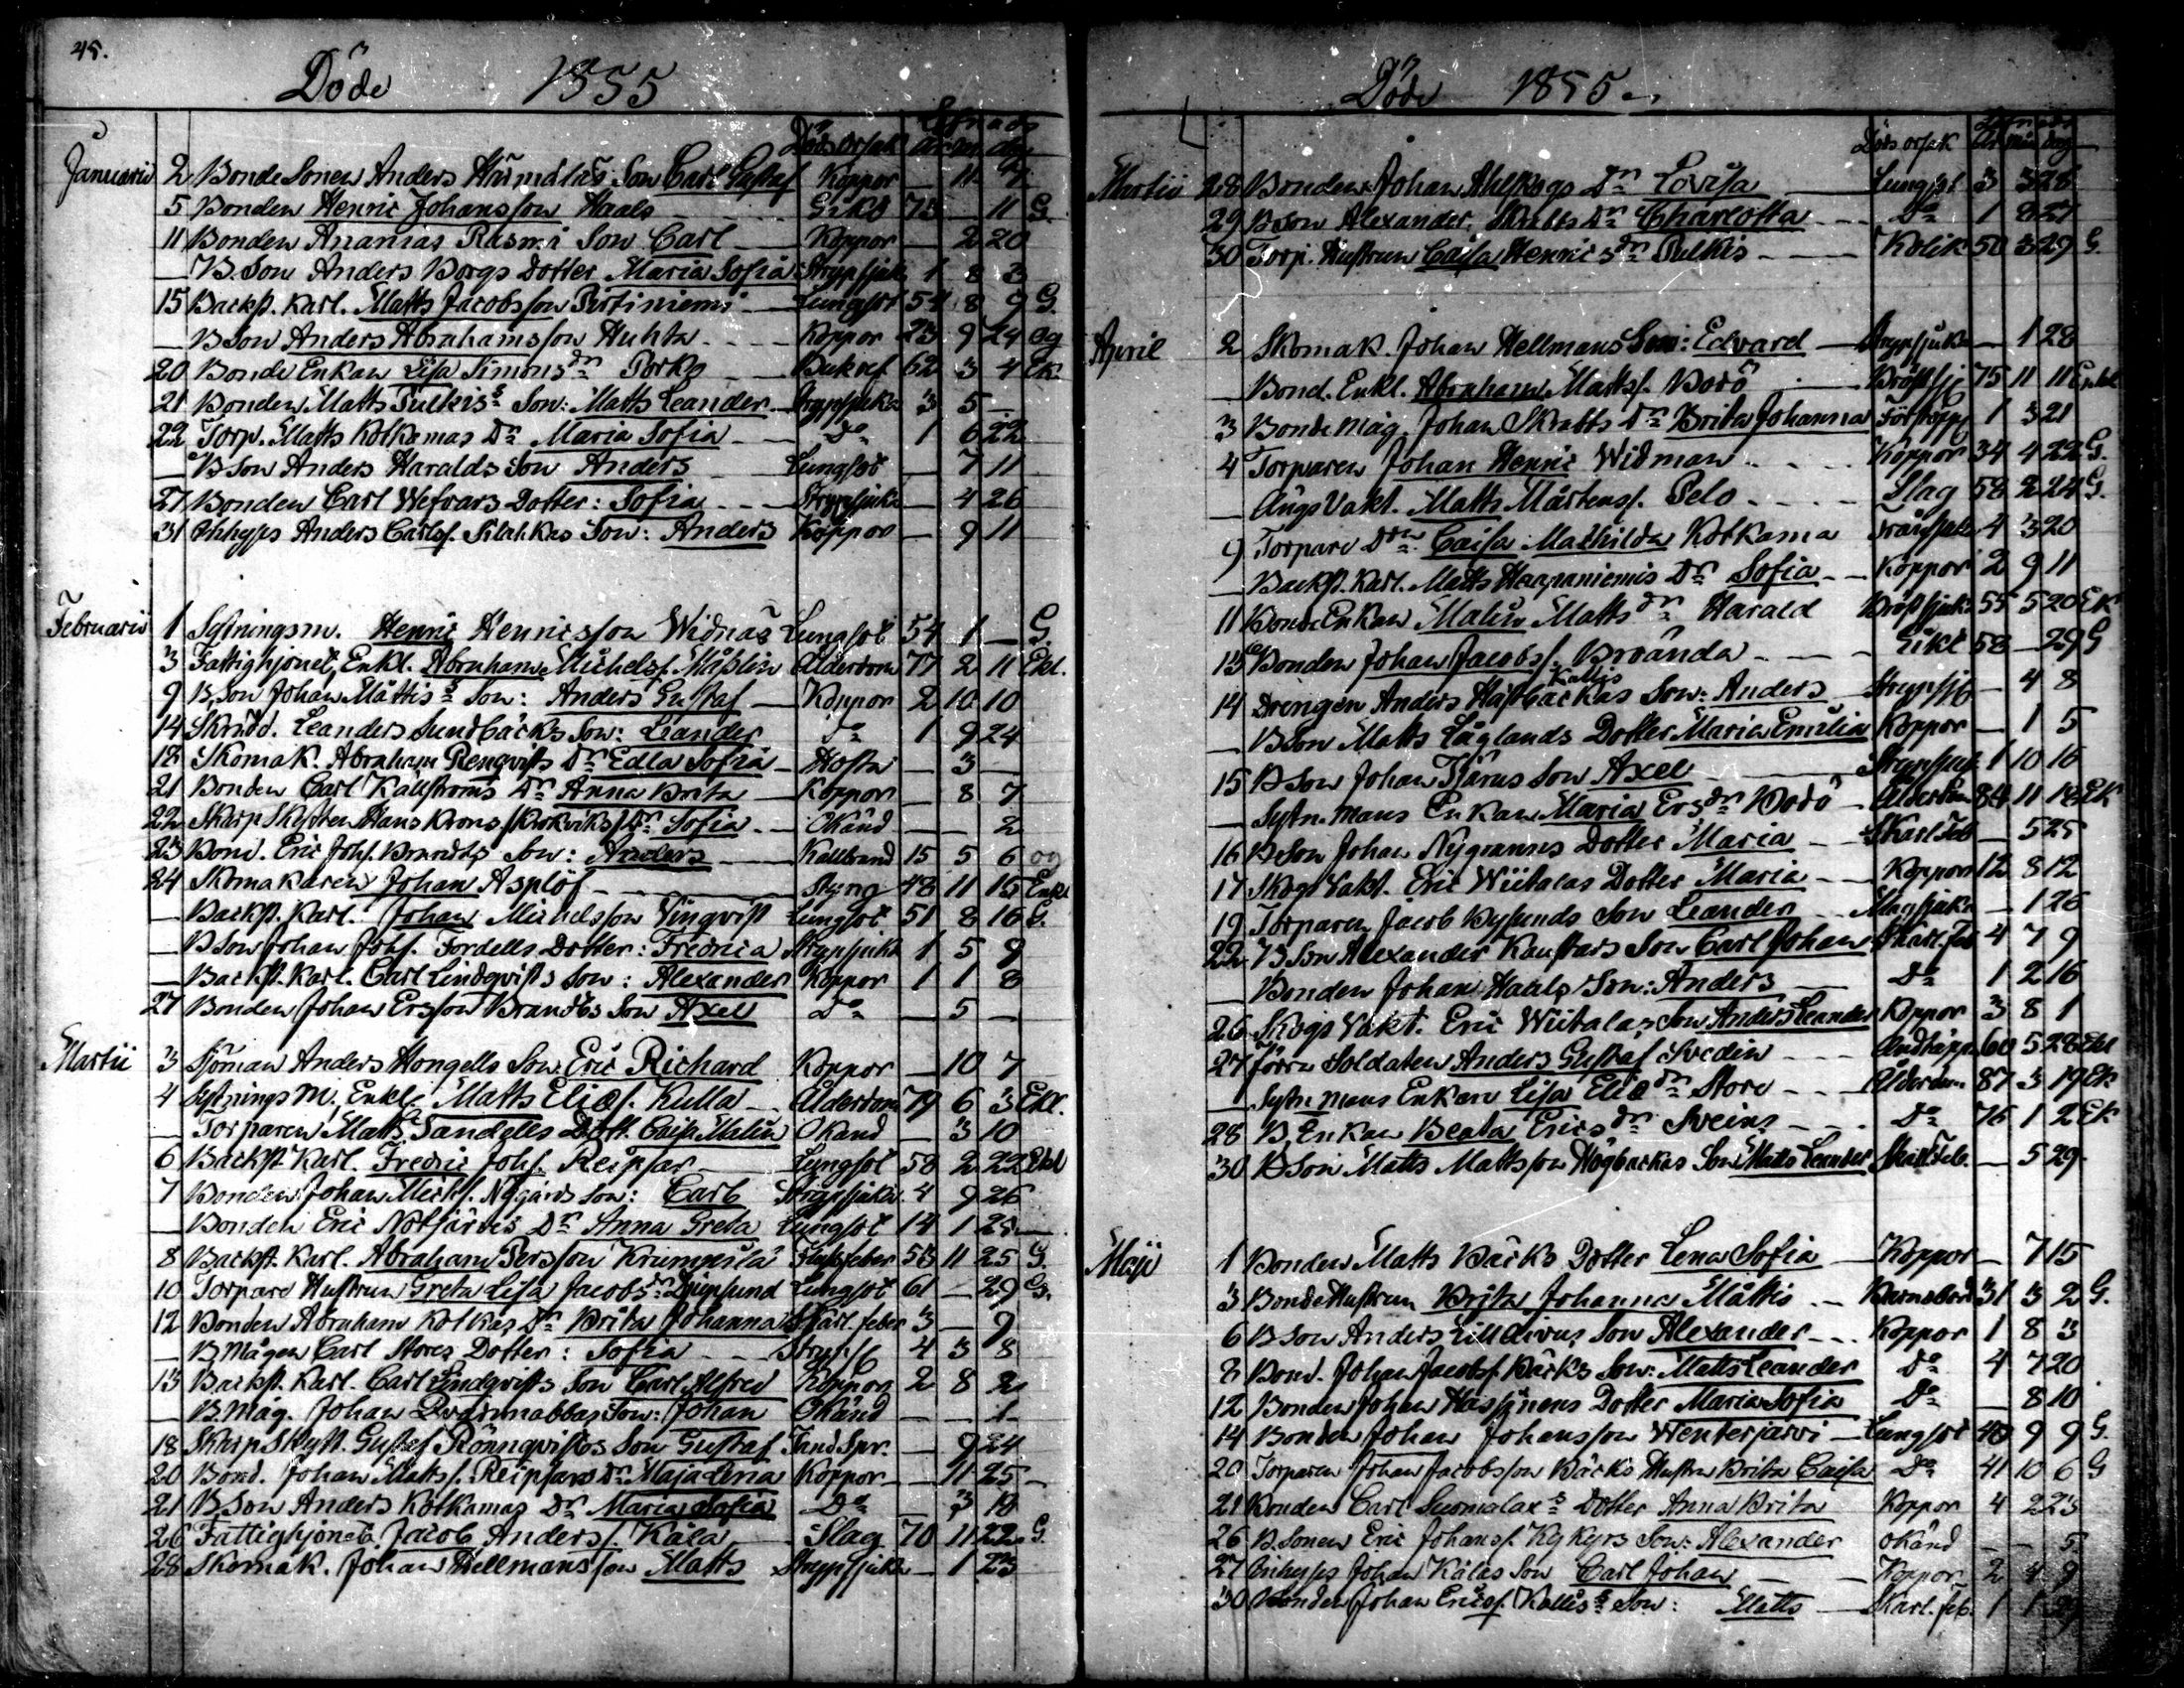 45.
Döde 1855
Döds orsak år mån dag
Januarii 2 Bonde Sonen Anders Son Carl Gustaf Koppor — 11
5 Bonden Henric Johansson Haals Gikt 73 — 11 G.
11 Bonden Ananias Rasmi Son Carl Koppor — 2 20
— B. Son Anders Borgs Dotter Maria Sofia Strypsjuk 1 8 3
15 Backst. Karl. Matts Jacobsson Pirtiniemi Lungsot 54 8 9 G.
— B Son Anders Abrahamsson Huhta Koppor 23 9 24 og
20 Bonde Enkan Lisa Simons dr Porko 62 3 4 Ek.
21 Bonden Matts Pulkis s Son: Matts Leander Strypsjuka 3 5 —
22 Torp. Matts Kotkamas Dr Maria Sofia Do 1 6 22
— B Son Anders Haralds Son Anders Lungsot — 7 11
27 Bonden Carl Wefvars Dotter: Sofia Strypsjuka — 4 26
31 Inhyses Anders Carlss. Son: Anders Koppor — 9 11
Februarii 1 Sytningsm. Henric Henricsson Widnäs Lungsot 54 1 — G.
3 Fattighjonet, Enkl. Abraham Michelss. Ålderdom 77 2 11 Ekl.
9 B. Son Johan Måttis s Son: Anders Gustaf Koppor 2 10 10
14 Skrädd. Leanders Sundbäcks Son: Leander Do 1 9 24
18 Skomak. Abraham Renqvists Dr Edla Sofia Hosta — 3 —
21 Bonden Carl Källströms Dr Anna Brita Koppor — 8 7
22 Skarp Skytten Hans Krons /Krokviks/ Dr Sofia Okänd — — 2
23 Bond. Eric Johs. Son: Anders Kallbrand 15 5 6 og
24 Skomakaren Johan Asplöf 48 11 15 Enkl
— Backst. Karl. Johan Michelsson Vinqvist Lungsot 51 8 16 G.
— B Son Johan Johs. Fordells Dotter: Fredrica Strypsjuka 1 5 9
— Backst. Karl. Carl Lindqvists Son: Alexander Koppor 1 1 8
27 Bonden Johan Ersson Brandts Son Axel Do — 5 —
Martii 3 Sjöman Anders Hongells Son Eric Richard Koppor — 10 7
4 Sytnings M., Enkl. Matts Eliæs. Kulla Ålderdom 79 6 3 Ekl.
— Torparen Matts Sandells Dott. Caisa Malin Okänd — 3 10
6 Backst Karl. Fredric Johs. Reipsar Lungsot 58 2 22 Ekl
7 Bonden Johan Mich s. Nygårds Son: Carl Strypsjuka 4 9 26
— Bonden Eric Notjärvis Dr Anna Greta Lungsot 14 1 28
8 Backst. Karl. Abraham Persson Krumpula Flussfeber 53 11 25 G.
10 Torpare Hustrun Greta Lisa Jacobs dr Djupsund Lungsot 61 — 29 G.
12 Bonden Abraham Kotkas Dr Brita Johanna Skarl. feber 3 — 9
— B Mågen Carl Stores Dotter: Sofia Stryps. 4 3 8
13 Backst. Karl. Carl Lindqvists Son Carl Alfred Koppor 2 8 2
— B. Måg. Johan Son: Johan Okänd — — 1
18 Skarp Skytt. Gustaf Rönnqvistos Son Gustaf Tand Spr. — 9 24
20 Bond. Johan Matts s. Reipsars Dr Maja Lena Koppor — 11 25
21 B Son Anders Kotkamas Dr Maria Sofia Do — 3 18
26 Fattighjonet Jacob Anders s. Kala Slag 70 11 22 G.
28 Skomak. Johan Hellmans son Matts Strypsjuka — 1 23
Döde 1855
Döds orsak
Martii 28 Bonden Johan Ahlskogs Dr Lovisa Lungsot 3 3 28
29 B. Son Alexander Skrabbs Dr Charlotta Do 1 8 27
30 Torp. Hustrun Caisa Henrics dr Pulkis Kolik 50 3 29 G.
April 2 Skomak. Johan Hellmans Son: Edvard Strypsjuka — 1 28
— Bond. Enkl. Abraham Mattss. Bodö Bröstsj 75 11 11 Enkl
3 Bonde Måg. Johan Skrabbs Dr Brita Johanna Förstopp 1 3 21
4 Torparen Johan Henric Widman Koppor 34 4 22 G.
— Ängs Vakt. Matts Mårtenss. Pelo Slag 58 2 24 G.
9 Torpare Drn Caisa Mathilda Kotkama 4 3 20
— Backst. Karl. Matts Haapaniemis Dr Sofia Koppor 2 9 11
11 Bonde Enkan Malin Matts dr Harald Bröst sjuka 55 5 20 Ek
13 Bonden Johan Jacobss. Brända Gikt 58 — 29 G
14 Drengen Anders Kallis Son: Anders Strypsj — 4 8
— B Son Matts Låglands Dotter Maria Emilia Koppor — 1 5
15 B Son Johan Tjärus Son Axel Strypsjuk 1 10 16
— Sytn. mans Enkan Maria Ers dr Bodö Ålderdom 84 11 18 Ek
16 B Son Johan Nygrannes Dotter Maria Skarl Feb — 5 25
17 Skogs Vakt. Eric Wiitalas Dotter Maria Koppor 12 8 12
19 Torparen Jacob Bysunds Son Leander Magsjuka — 1 26
22 B Son Alexander Kaustars Son Carl Johan Skarl. Feb 4 7 9
— Bonden Johan Haals Son: Anders Do 1 2 16
26 Skogs Vakt. Eric Wiitalas Son Anders Leander Koppor 3 8 1
27 förra Soldaten Anders Gustaf Svedin Andtäppa 60 5 28 Ekl
— Sytn. mans Enkan Lisa Eliæ dr Store Ålderdom 87 3 19 Ek
28 B. Enkan Beata Erics dr Sveins Do 76 1 2 Ek
30 B Son Matts Mattsson Högbackas Son Matts Leander Skarl Feb. — 5 29
Maji 1 Bonden Matts Bäcks Dotter Lena Sofia Koppor — 7 15
3 Bonde Hustrun Brita Johanna Måttis Barnsbörd 31 3 2 G.
6 B Son Anders Son Alexander Koppor 1 8 3
8 Bond. Johan Jacobs s. Bäcks Son: Matts Leander Do 4 7 20
12 Bonden Johan Dotter Maria Sofia Do — 8 10
14 Bonden Johan Johansson Wenterjärvi Lungsot 40 9 9 G.
20 Torparen Johan Jacobsson Bäcks Hustru Brita Caisa Do 41 10 6 G
21 Bonden Carl Suomalax s Dotter Anna Brita Koppor 4 2 23
26 B. Sonen Eric Johans s. Kykyrs Son: Alexander okänd — — 5
27 Inhyses Johan Kälas Son Carl Johan Koppor 2 4 9
30 Bonden Johan Ericss. Kallis s Son: Matts Skarl. feb. 1 1 29